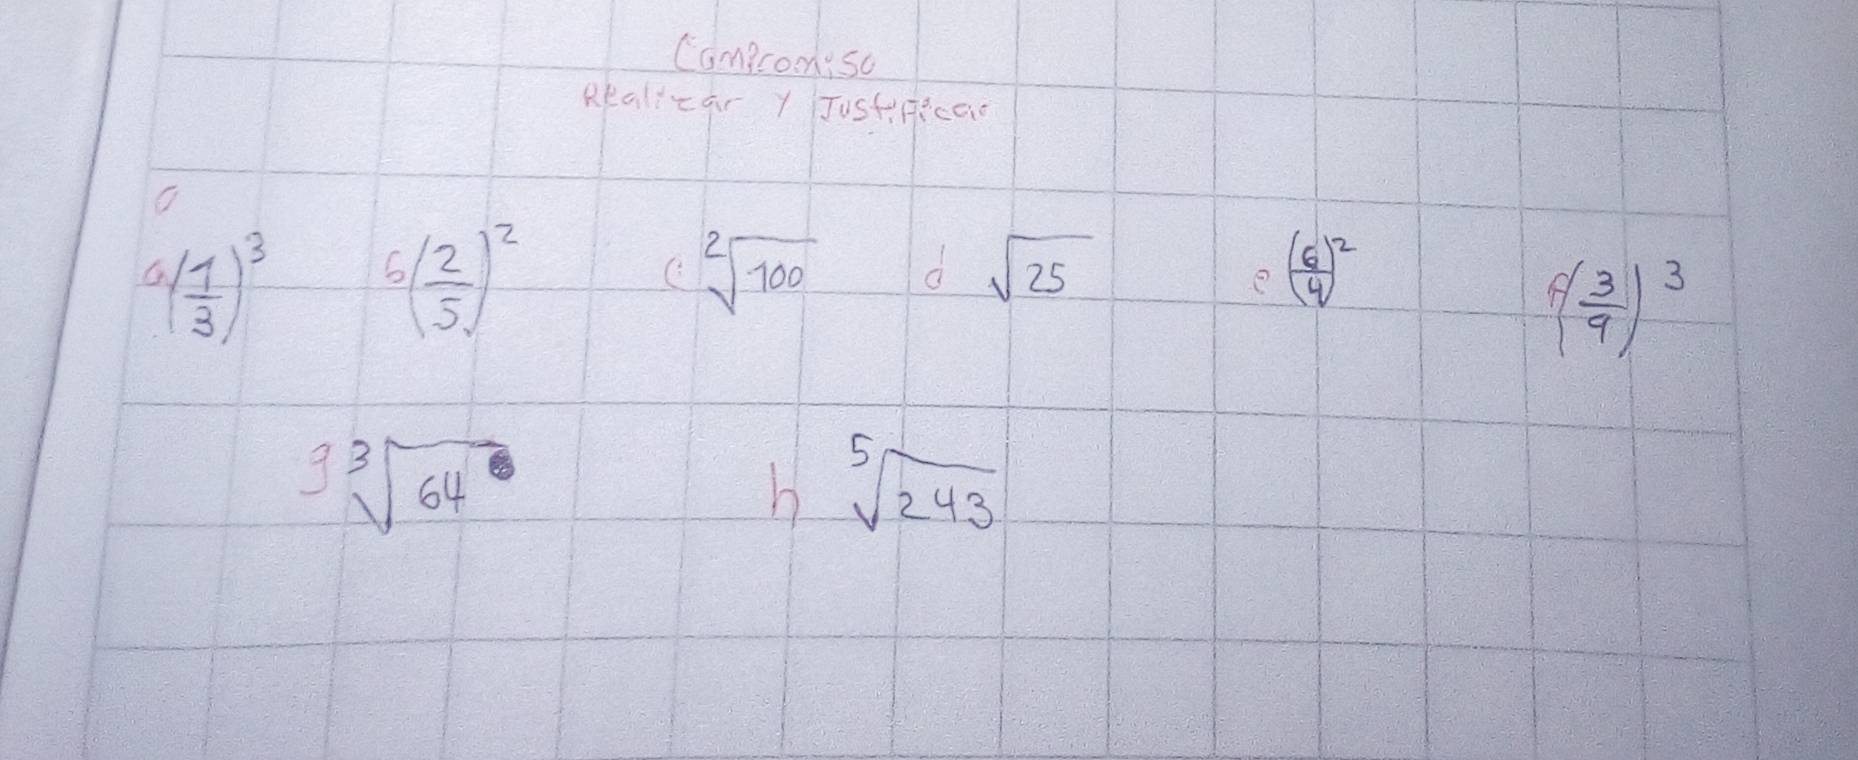 Compromiso
Realizar y Justificar
a (1/3)³ b (2/5)² c ²√100 d √25 e (6/4)² f (3/9)³
g ³√64 h ⁵√243